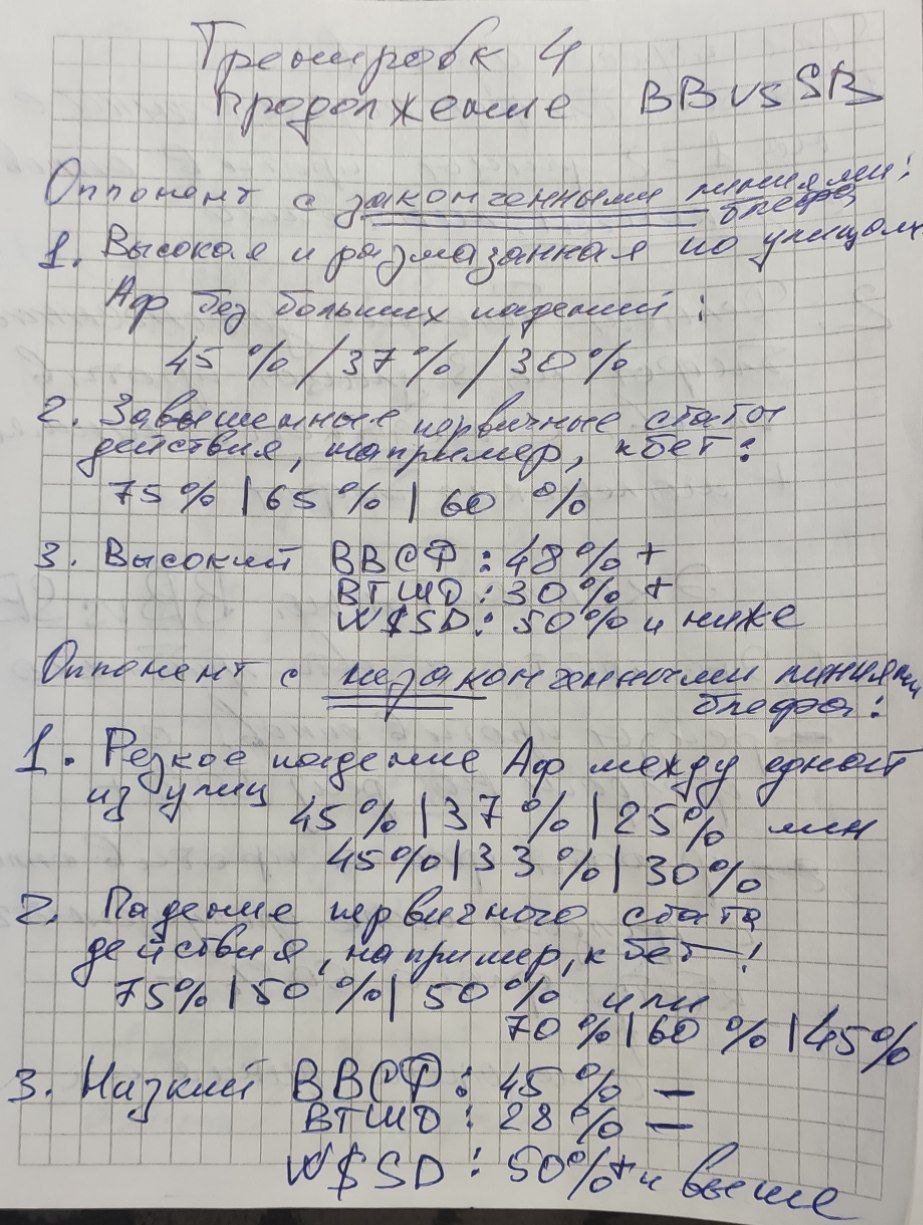 Тренировк 4
продолжение BB vs SB
Оппонент с законченными линиями
блефа:
1. Высокая и размазанная по улицам
Аф без больших падений:
45 % / 37 % / 30 %
2. Завышенные первичные статы
действия, например, кбет:
75 % | 65 % | 60 %
3. Высокий ВВСФ: 48 % +
ВТШД: 30 % +
W$SD: 50 % и ниже
Оппонент с незаконченными линиями
блефа:
1. Резкое падение Аф между одной
из улиц
45 % | 37 % | 25 % или
45 % | 33 % | 30 %
2. Падение первичного стата
действия, например, кбет:
75 % | 50 % | 50 % или
70 % | 60 % | 45 %
3. Низкий ВВСФ: 45 % -
ВТШД: 28 % -
W$SD: 50 %+ и выше